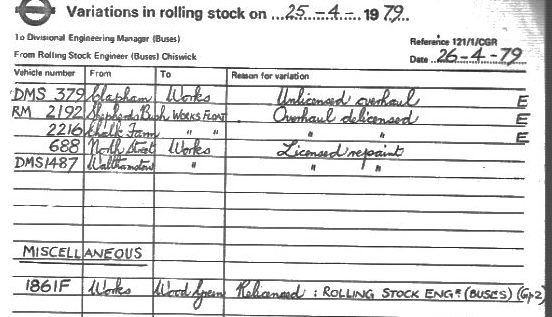 Variations in rolling stock on ...25-4-.... 1979..
To Divisional Engineering Manager (Buses)
Reference 121/1/CGR
From Rolling Stock Engineer (Buses) Chiswick
Date ..26-4-79
Vehicle number From To Reason for variation
DMS 379 Clapham Works Unlicensed overhaul E
RM 2192 Shepherds Bush WORKS FLOAT Overhaul delicensed E
2216 Chalk Farm " " " " E
688 North Street Works Licensed repaint
DMS1487 Walthamstow " " "
MISCELLANEOUS
1861F Works Wood Green Relicensed : ROLLING STOCK ENGR (BUSES) (Gp2)